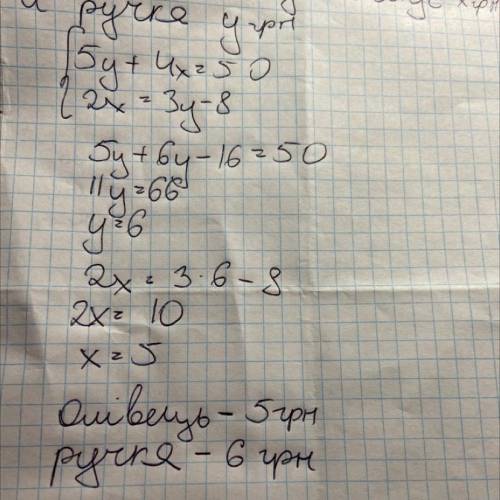 ручка y грн
x грн
5y + 4x = 50
2x = 3y - 8
5y + 6y - 16 = 50
11y = 66
y = 6
2x = 3 · 6 - 8
2x = 10
x = 5
Олівець - 5 грн
ручка - 6 грн